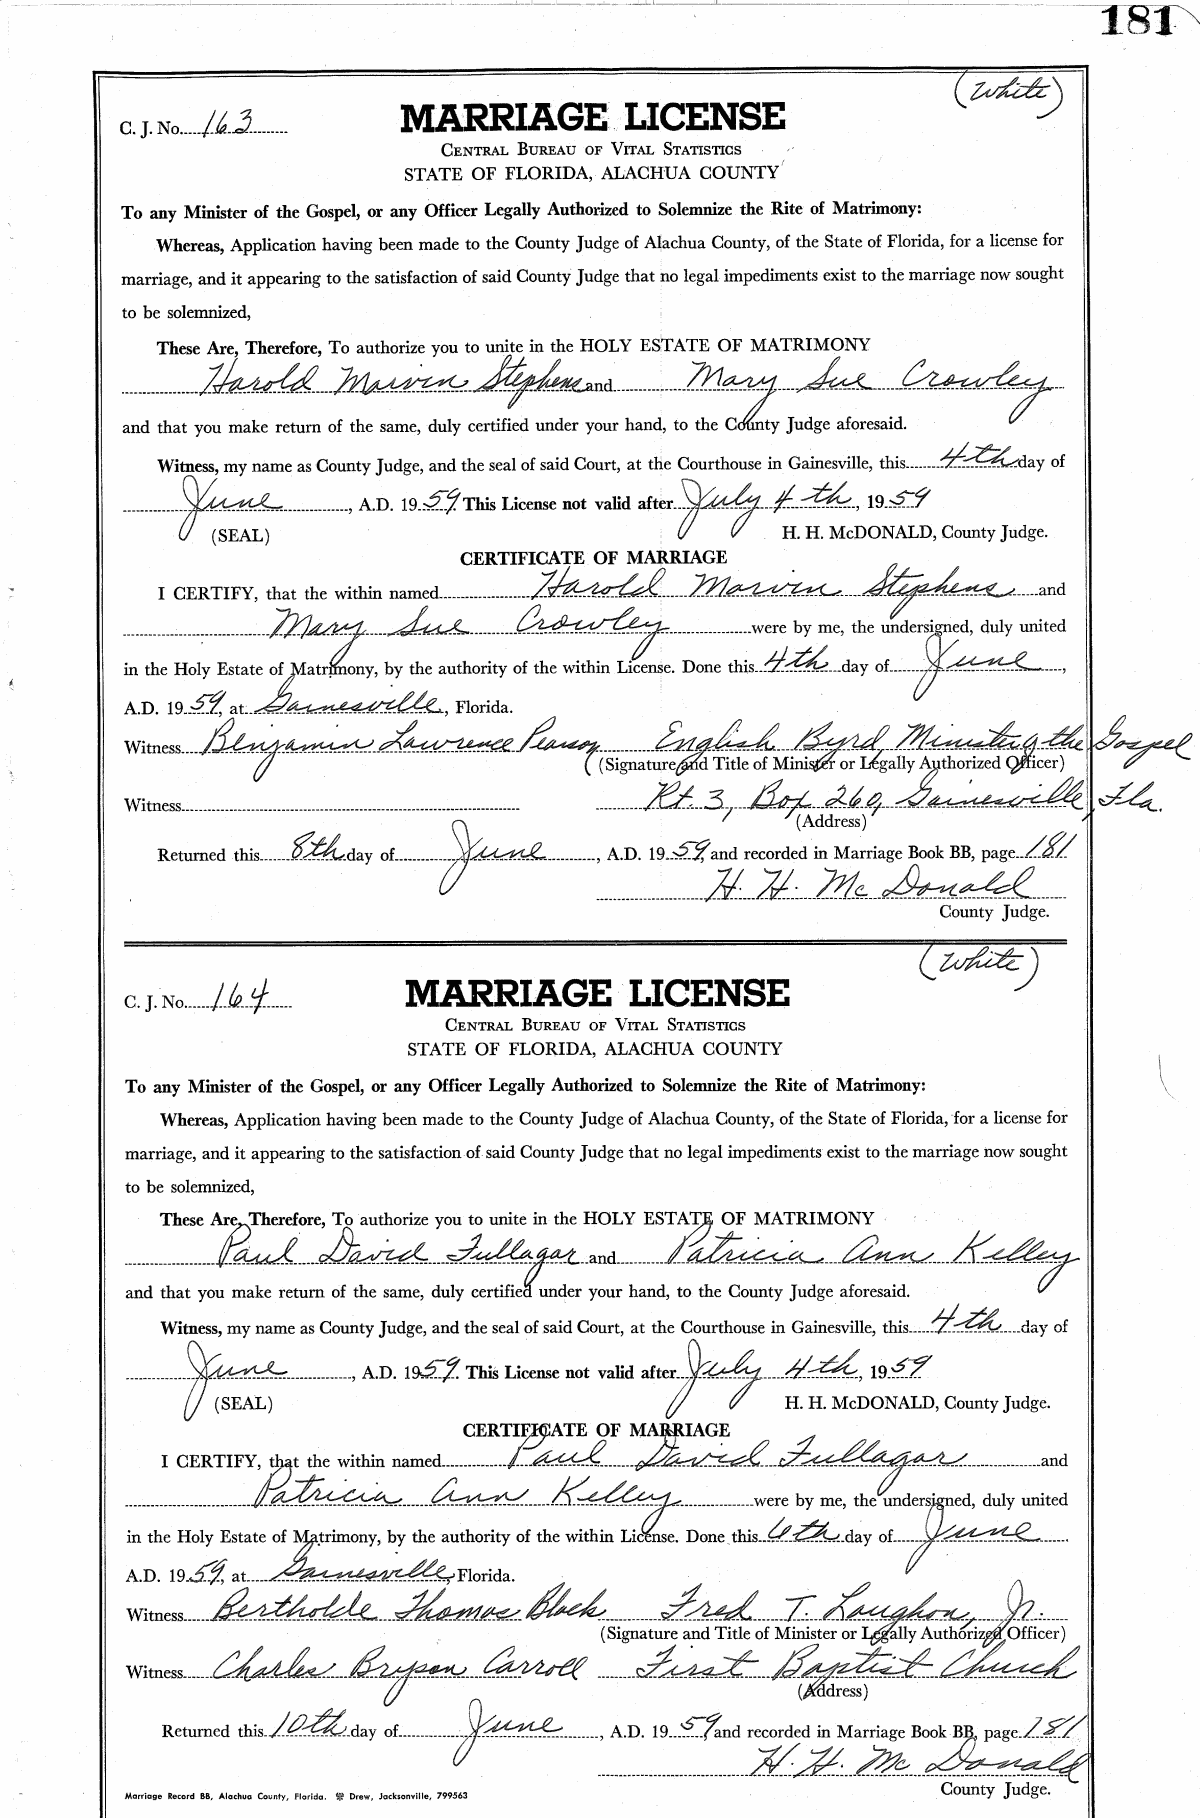 181
(White)
C. J. No. 163
MARRIAGE LICENSE
CENTRAL BUREAU OF VITAL STATISTICS
STATE OF FLORIDA, ALACHUA COUNTY
To any Minister of the Gospel, or any Officer Legally Authorized to Solemnize the Rite of Matrimony:
Whereas, Application having been made to the County Judge of Alachua County, of the State of Florida, for a license for
marriage, and it appearing to the satisfaction of said County Judge that no legal impediments exist to the marriage now sought
to be solemnized,
These Are, Therefore, To authorize you to unite in the HOLY ESTATE OF MATRIMONY
Harold Marvin Stephens and Mary Sue Crowley
and that you make return of the same, duly certified under your hand, to the County Judge aforesaid.
Witness, my name as County Judge, and the seal of said Court, at the Courthouse in Gainesville, this 4th day of
June, A.D. 1959. This License not valid after July 4th, 1959
(SEAL) H. H. McDONALD, County Judge.
CERTIFICATE OF MARRIAGE
I CERTIFY, that the within named Harold Marvin Stephens and
Mary Sue Crowley were by me, the undersigned, duly united
in the Holy Estate of Matrimony, by the authority of the within License. Done this 4th day of June,
A.D. 1959, at Gainesville, Florida.
Witness Benjamin Lawrence Pearson English Byrd, Minister of the Gospel
(Signature and Title of Minister or Legally Authorized Officer)
Witness Rt. 3, Box 260, Gainesville, Fla.
(Address)
Returned this 8th day of June, A.D. 1959, and recorded in Marriage Book BB, page 181
H. H. McDonald
County Judge.
(White)
C. J. No. 164
MARRIAGE LICENSE
CENTRAL BUREAU OF VITAL STATISTICS
STATE OF FLORIDA, ALACHUA COUNTY
To any Minister of the Gospel, or any Officer Legally Authorized to Solemnize the Rite of Matrimony:
Whereas, Application having been made to the County Judge of Alachua County, of the State of Florida, for a license for
marriage, and it appearing to the satisfaction of said County Judge that no legal impediments exist to the marriage now sought
to be solemnized,
These Are, Therefore, To authorize you to unite in the HOLY ESTATE OF MATRIMONY
Paul David Fullagar and Patricia Ann Kelley
and that you make return of the same, duly certified under your hand, to the County Judge aforesaid.
Witness, my name as County Judge, and the seal of said Court, at the Courthouse in Gainesville, this 4th day of
June, A.D. 1959. This License not valid after July 4th, 1959
(SEAL) H. H. McDONALD, County Judge.
CERTIFICATE OF MARRIAGE
I CERTIFY, that the within named Paul David Fullagar and
Patricia Ann Kelley were by me, the undersigned, duly united
in the Holy Estate of Matrimony, by the authority of the within License. Done this 6th day of June
A.D. 1959, at Gainesville, Florida.
Witness Bertholde Thomas Block Fred T. Laughon, Jr.
(Signature and Title of Minister or Legally Authorized Officer)
Witness Charles Bryson Carroll First Baptist Church
(Address)
Returned this 10th day of June, A.D. 1959, and recorded in Marriage Book BB, page 181
H. H. McDonald
County Judge.
Marriage Record BB, Alachua County, Florida. Drew, Jacksonville, 799563